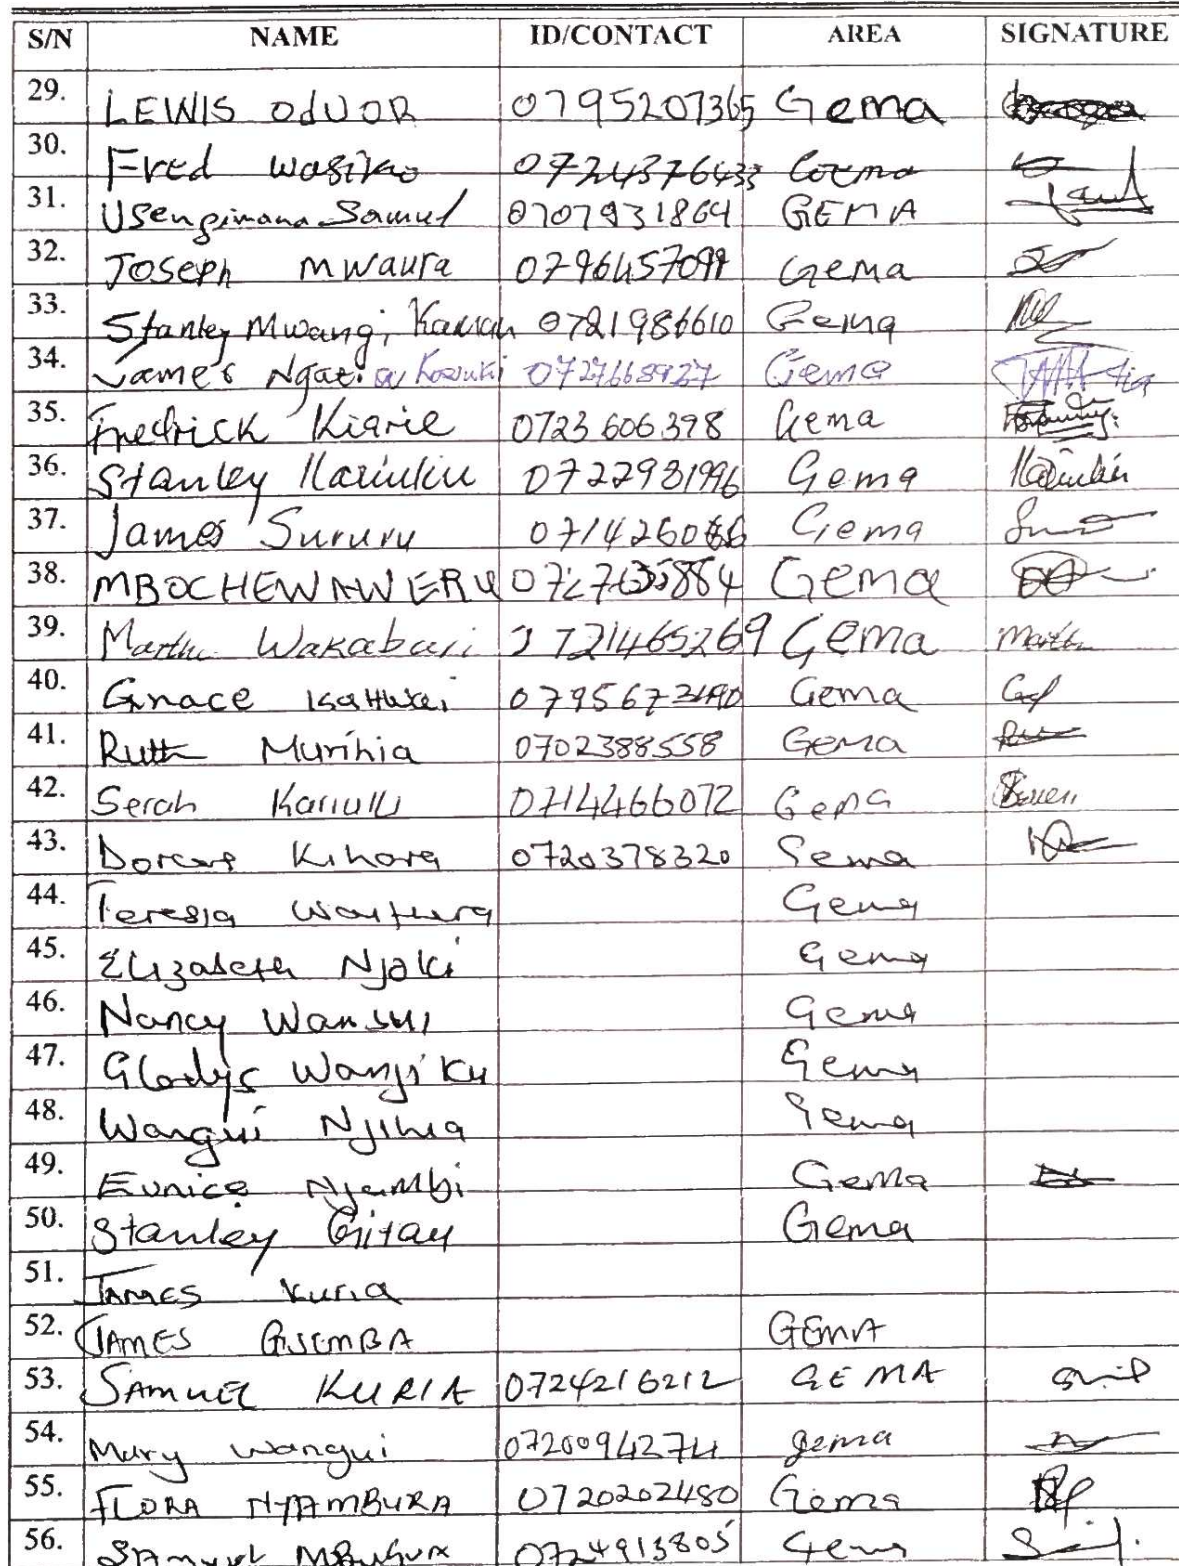 S/N NAME ID/CONTACT AREA SIGNATURE
29. LEWIS OdUOR 0795207365 Gema
30. Fred Wasike 0724376433 Gema
31. Usengimana Samuel 0707931864 GEMA
32. Joseph Mwaura 0796457099 Gema
33. Stanley Mwangi Kariah 0721986610 Gema
34. James Ngatia Kariuki 0727668927 Gema
35. Fredrick Kiarie 0723606398 Gema
36. Stanley Kariuki 0722981996 Gema Kariuki
37. James Sururu Gema
38. MBOCHEWAWERU Gema
39. Martha Wakabari 721465269 Gema Martha
40. Grace Gema
41. Ruth Murihia 0702388558 Gema
42. Serah Kariuki 0714466072 Gema
43. Dorcas Kihora 0720378320 Gema
44. Teresia Waithera Gema
45. Elizabeth Njoki Gema
46. Nancy Wambui Gema
47. Gladys Wanjiku Gema
48. Wangui Njihia Gema
49. Eunice Njambi Gema
50. Stanley Gitau Gema
51. JAMES Kuria
52. JAMES GISEMBA GEMA
53. SAMUEL KURIA 0724216212 GEMA
54. Mary Wangui 0720094274 gema
55. FLORA NYAMBURA 0720202480 Gema
56. SAMUEL MBUGUA 0724913805 Gema